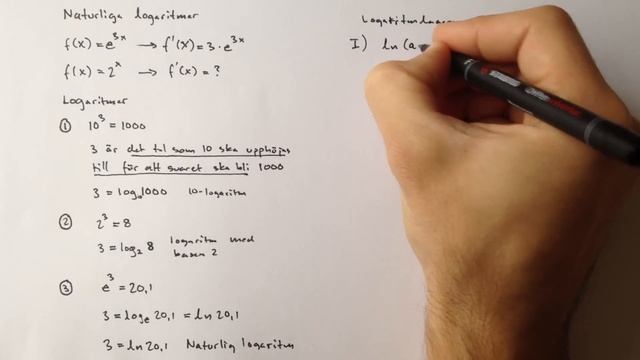 Naturliga logaritmer
f(x) = e^3x → f'(x) = 3 · e^3x
f(x) = 2^x → f'(x) = ?
Logaritmer
① 10^3 = 1000
3 är det tal som 10 ska upphöjas
till för att svaret ska bli 1000
3 = log₁₀1000 10-logaritm
② 2^3 = 8
3 = log₂ 8 logaritm med
basen 2
③ e^3 = 20,1
3 = logₑ 20,1 = ln 20,1
3 = ln 20,1 Naturlig logaritm
I) ln (a